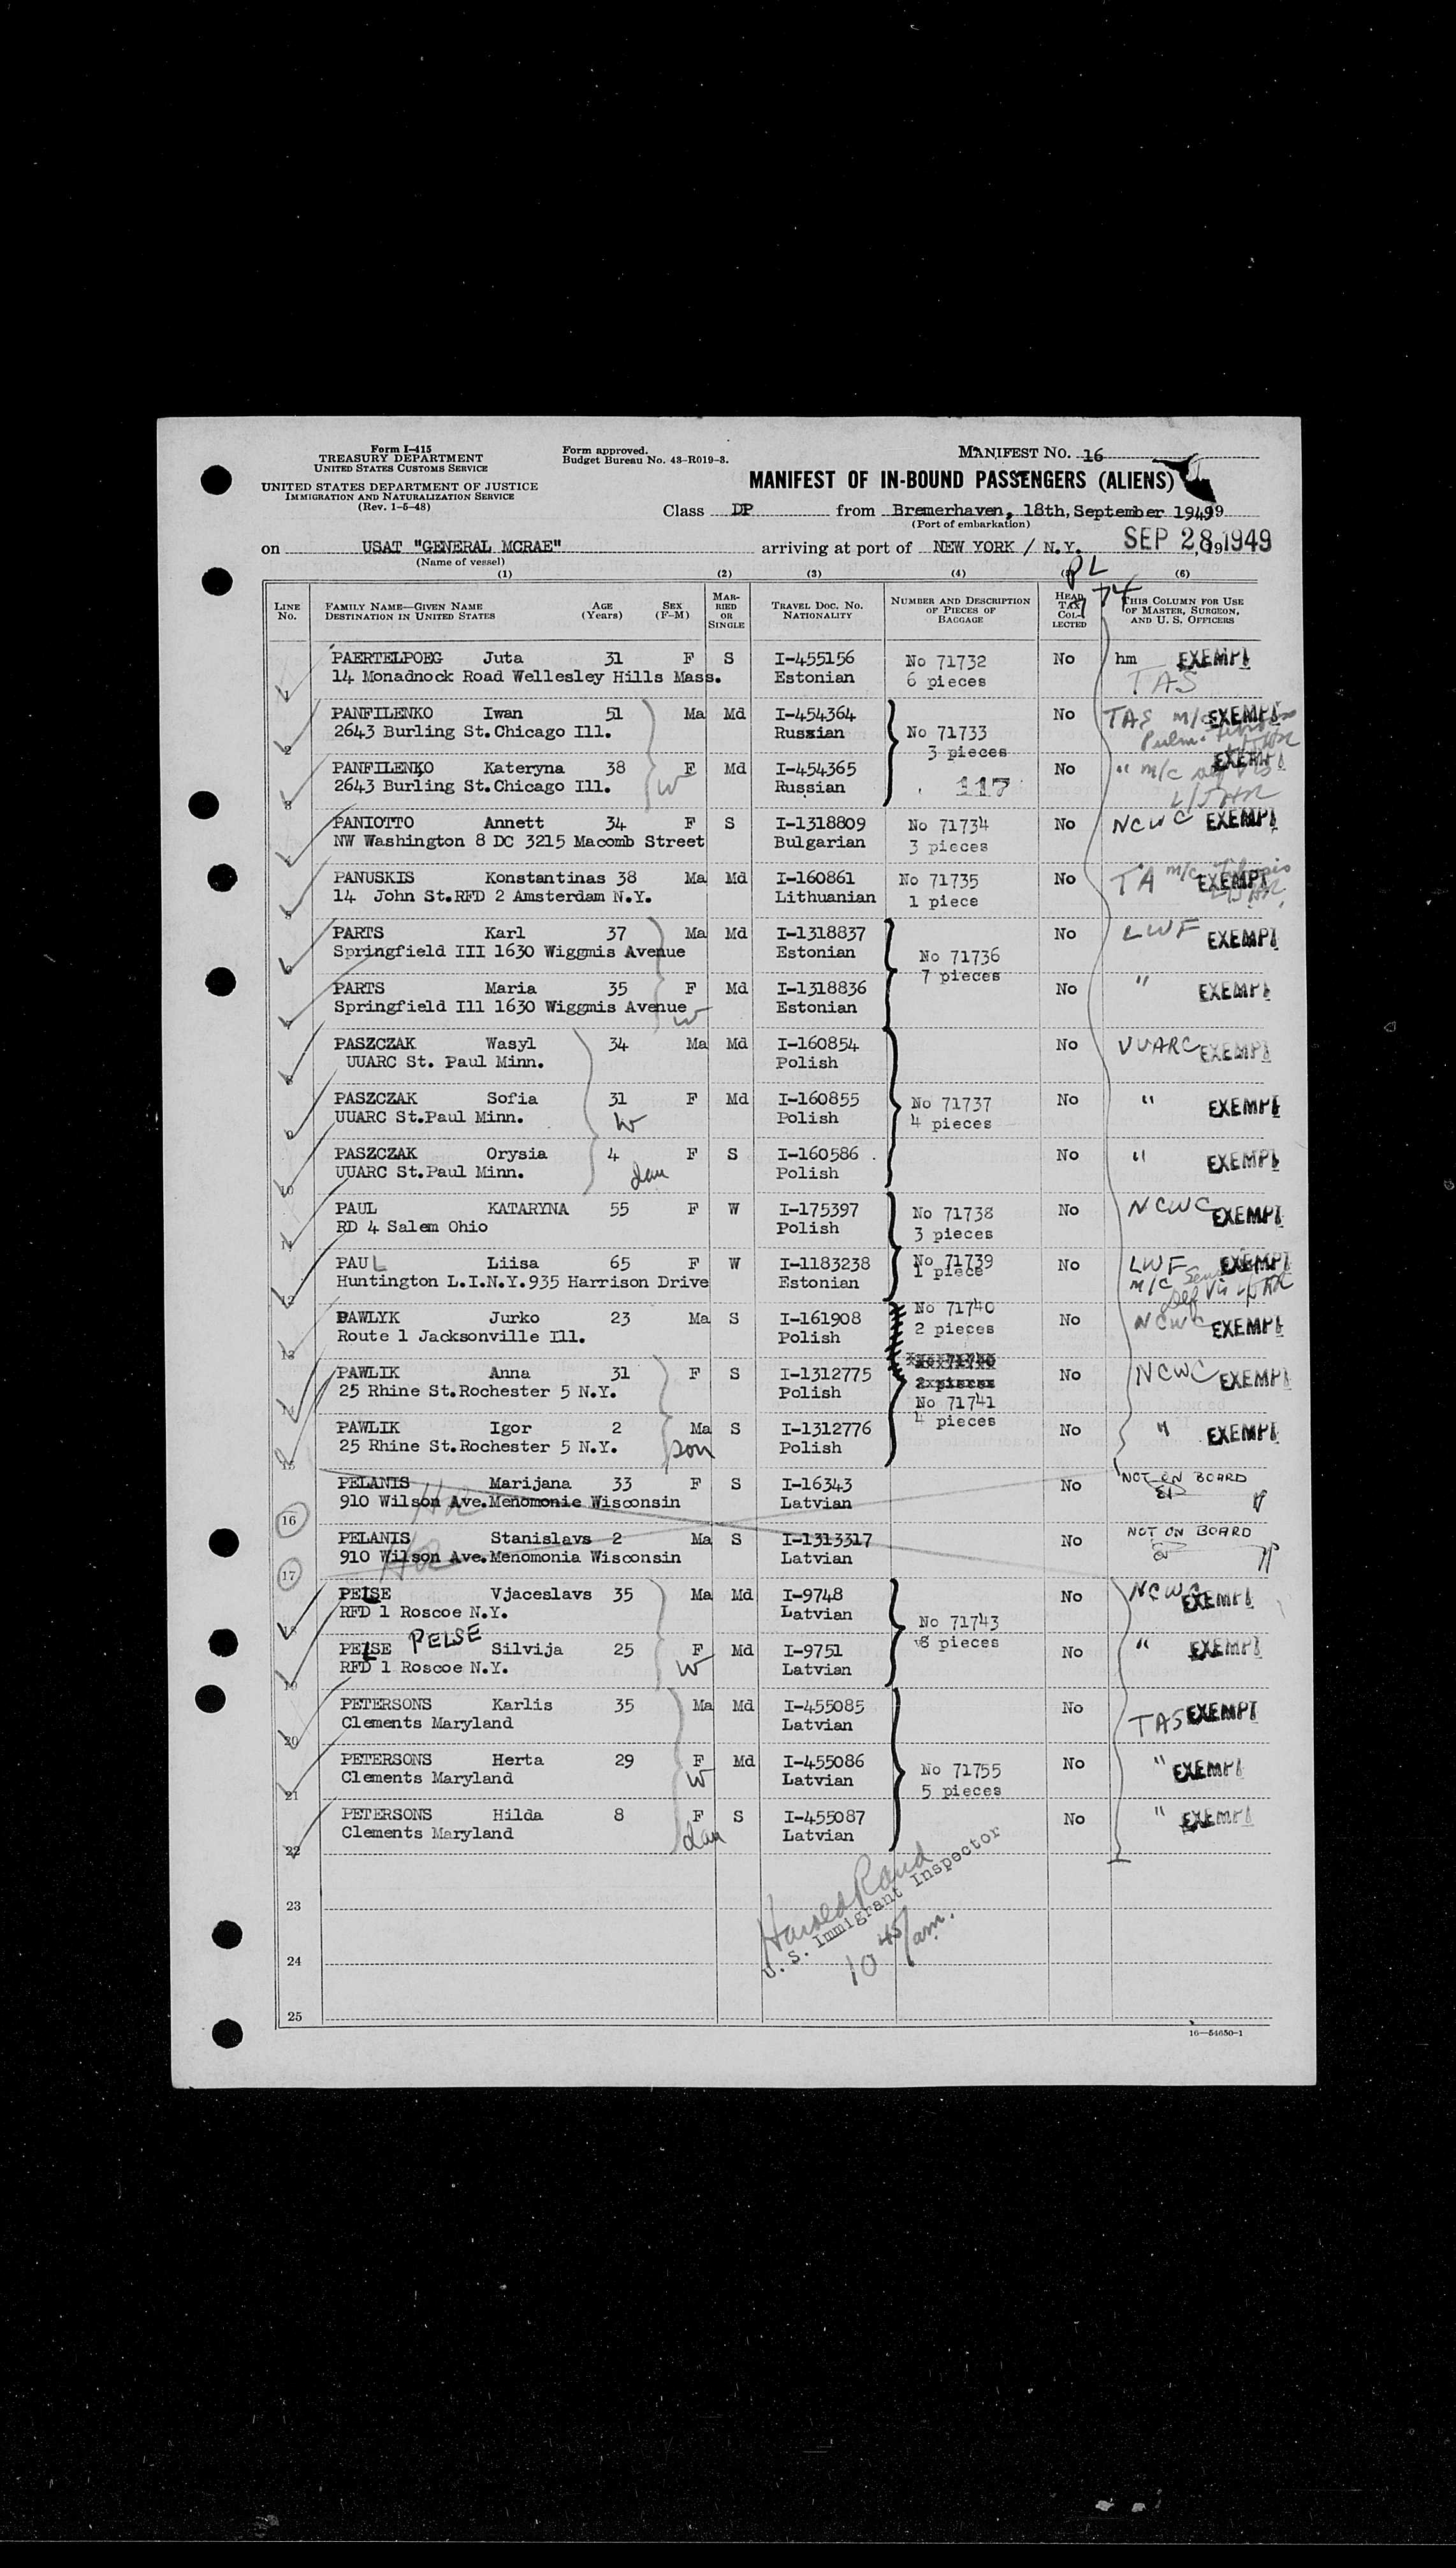 Form I-415
TREASURY DEPARTMENT
UNITED STATES CUSTOMS SERVICE
UNITED STATES DEPARTMENT OF JUSTICE
IMMIGRATION AND NATURALIZATION SERVICE
(Rev. 1-5-48)
Form approved.
Budget Bureau No. 43-R019-3.
MANIFEST NO. 16
MANIFEST OF IN-BOUND PASSENGERS (ALIENS)
Class DP from Bremerhaven, 18th, September 1949
(Port of embarkation)
on USAT "GENERAL MCRAE" arriving at port of NEW YORK / N.Y. SEP 28 1949
(Name of vessel)
PL
74
(1) (2) (3) (4) (6)
LINE No. FAMILY NAME—GIVEN NAME DESTINATION IN UNITED STATES AGE (Years) SEX (F-M) MARRIED OR SINGLE TRAVEL DOC. NO. NATIONALITY NUMBER AND DESCRIPTION OF PIECES OF BAGGAGE HEAD TAX COLLECTED THIS COLUMN FOR USE OF MASTER, SURGEON, AND U. S. OFFICERS
1 PAERTELPOEG Juta 31 F S I-455156 No 71732 No hm EXEMPT
14 Monadnock Road Wellesley Hills Mass. Estonian 6 pieces TAS
2 PANFILENKO Iwan 51 Ma Md I-454364 No 71733 No TAS m/c EXEMPT
2643 Burling St.Chicago Ill. Russian 3 pieces Pulm.
3 PANFILENKO Kateryna 38 F W Md I-454365 No " m/c EXEMPT
2643 Burling St.Chicago Ill. Russian 117
4 PANIOTTO Annett 34 F S I-1318809 No 71734 No NCWC EXEMPT
NW Washington 8 DC 3215 Macomb Street Bulgarian 3 pieces
5 PANUSKIS Konstantinas 38 Ma Md I-160861 No 71735 No TA m/c EXEMPT
14 John St.RFD 2 Amsterdam N.Y. Lithuanian 1 piece
6 PARTS Karl 37 Ma Md I-1318837 No 71736 No LWF EXEMPT
Springfield III 1630 Wiggmis Avenue Estonian 7 pieces
7 PARTS Maria 35 F W Md I-1318836 No " EXEMPT
Springfield Ill 1630 Wiggmis Avenue Estonian
8 PASZCZAK Wasyl 34 Ma Md I-160854 No UUARC EXEMPT
UUARC St. Paul Minn. Polish
9 PASZCZAK Sofia 31 W F Md I-160855 No 71737 No " EXEMPT
UUARC St.Paul Minn. Polish 4 pieces
10 PASZCZAK Orysia 4 dau F S I-160586 No " EXEMPT
UUARC St.Paul Minn. Polish
11 PAUL KATARYNA 55 F W I-175397 No 71738 No NCWC EXEMPT
RD 4 Salem Ohio Polish 3 pieces
12 PAUL Liisa 65 F W I-1183238 No 71739 No LWF EXEMPT
Huntington L.I.N.Y.935 Harrison Drive Estonian 1 piece m/c
13 PAWLYK Jurko 23 Ma S I-161908 No 71740 No NCWC EXEMPT
Route 1 Jacksonville Ill. Polish 2 pieces
14 PAWLIK Anna 31 F S I-1312775 No NCWC EXEMPT
25 Rhine St.Rochester 5 N.Y. Polish No 71741
15 PAWLIK Igor 2 Ma son S I-1312776 4 pieces No " EXEMPT
25 Rhine St.Rochester 5 N.Y. Polish
16 PELANIS Marijana 33 F S I-16343 No NOT ON BOARD
910 Wilson Ave.Menomonie Wisconsin Latvian
17 PELANIS Stanislavs 2 Ma S I-1313317 No NOT ON BOARD
910 Wilson Ave.Menomonia Wisconsin Latvian
18 PELSE Vjaceslavs 35 Ma Md I-9748 No 71743 No NCWC EXEMPT
RFD 1 Roscoe N.Y. Latvian 8 pieces
19 PELSE PELSE Silvija 25 F W Md I-9751 No " EXEMPT
RFD 1 Roscoe N.Y. Latvian
20 PETERSONS Karlis 35 Ma Md I-455085 No TAS EXEMPT
Clements Maryland Latvian
21 PETERSONS Herta 29 F W Md I-455086 No 71755 No " EXEMPT
Clements Maryland Latvian 5 pieces
22 PETERSONS Hilda 8 F dau S I-455087 No " EXEMPT
Clements Maryland Latvian
Harold Rand
U. S. Immigrant Inspector
10 45/am.
23
24
25
16—54650-1